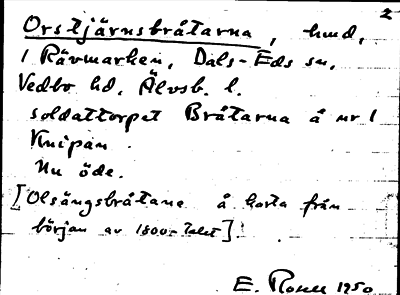 2
Orstjärnsbråtarna, hmd,
1 Rävmarken, Dals-Eds sn,
Vedbo hd, Älvsb. l.
soldattorpet Bråtarna å nr 1
Knipan.
Nu öde.
[Olsängsbråtane å karta från
början av 1800-talet]
E. Rosell 1950